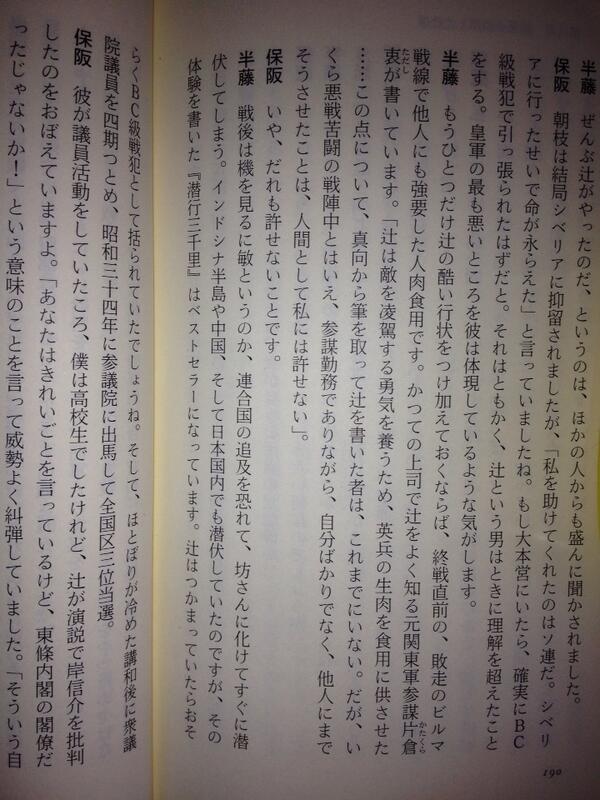 半藤　ぜんぶ辻がやったのだ、というのは、ほかの人からも盛んに聞かされました。
保阪　朝枝は結局シベリアに抑留されましたが、「私を助けてくれたのはソ連だ。シベリ
アに行ったせいで命が永らえた」と言っていましたね。もし大本営にいたら、確実にBC
級戦犯で引っ張られたはずだと。それはともかく、辻という男はときに理解を超えたこと
をする。皇軍の最も悪いところを彼は体現しているような気がします。
半藤　もうひとつだけ辻の酷い行状をつけ加えておくならば、終戦直前の、敗走のビルマ
戦線で他人にも強要した人肉食用です。かつての上司で辻をよく知る元関東軍参謀片倉（かたくら）
衷（ただし）が書いています。「辻は敵を凌駕する勇気を養うため、英兵の生肉を食用に供させた
……この点について、真向から筆を取って辻を書いた者は、これまでにいない。だが、い
くら悪戦苦闘の戦陣中とはいえ、参謀勤務でありながら、自分ばかりでなく、他人にまで
そうさせたことは、人間として私には許せない」。
保阪　いや、だれも許せないことです。
半藤　戦後は機を見るに敏というのか、連合国の追及を恐れて、坊さんに化けてすぐに潜
伏してしまう。インドシナ半島や中国、そして日本国内でも潜伏していたのですが、その
体験を書いた『潜行三千里』はベストセラーになっています。辻はつかまっていたらおそ
190
らくBC級戦犯として括られていたでしょうね。そして、ほとぼりが冷めた講和後に衆議
院議員を四期つとめ、昭和三十四年に参議院に出馬して全国区三位当選。
保阪　彼が議員活動をしていたころ、僕は高校生でしたけれど、辻が演説で岸信介を批判
したのをおぼえていますよ。「あなたはきれいごとを言っているけど、東條内閣の閣僚だ
ったじゃないか！」という意味のことを言って威勢よく糾弾していました。「そういう自